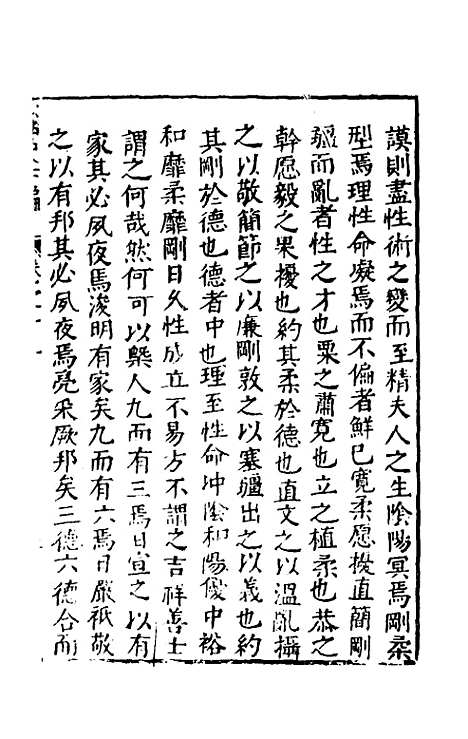 謨則盡性術之變而至精夫人之生陰陽㝠焉剛柔
型焉理性命凝焉而不偏者鮮已寛柔愿擾直簡剛
彊而亂者性之才也栗之肅寛也立之植柔也恭之
幹愿毅之果擾也約其柔於德也直文之以溫亂攝
之以敬簡節之以廉剛敦之以塞彊出之以義也約
其剛於德也德者中也理至性命冲陰和陽優中裕
和靡柔靡剛日久性成立不易方不謂之吉祥善士
謂之何哉然何可以槩人九而有三焉日宣之以有
家其必夙夜焉浚明有家矣九而有六焉日嚴祇敬
之以有邦其必夙夜焉亮采厥邦矣三德六德合而